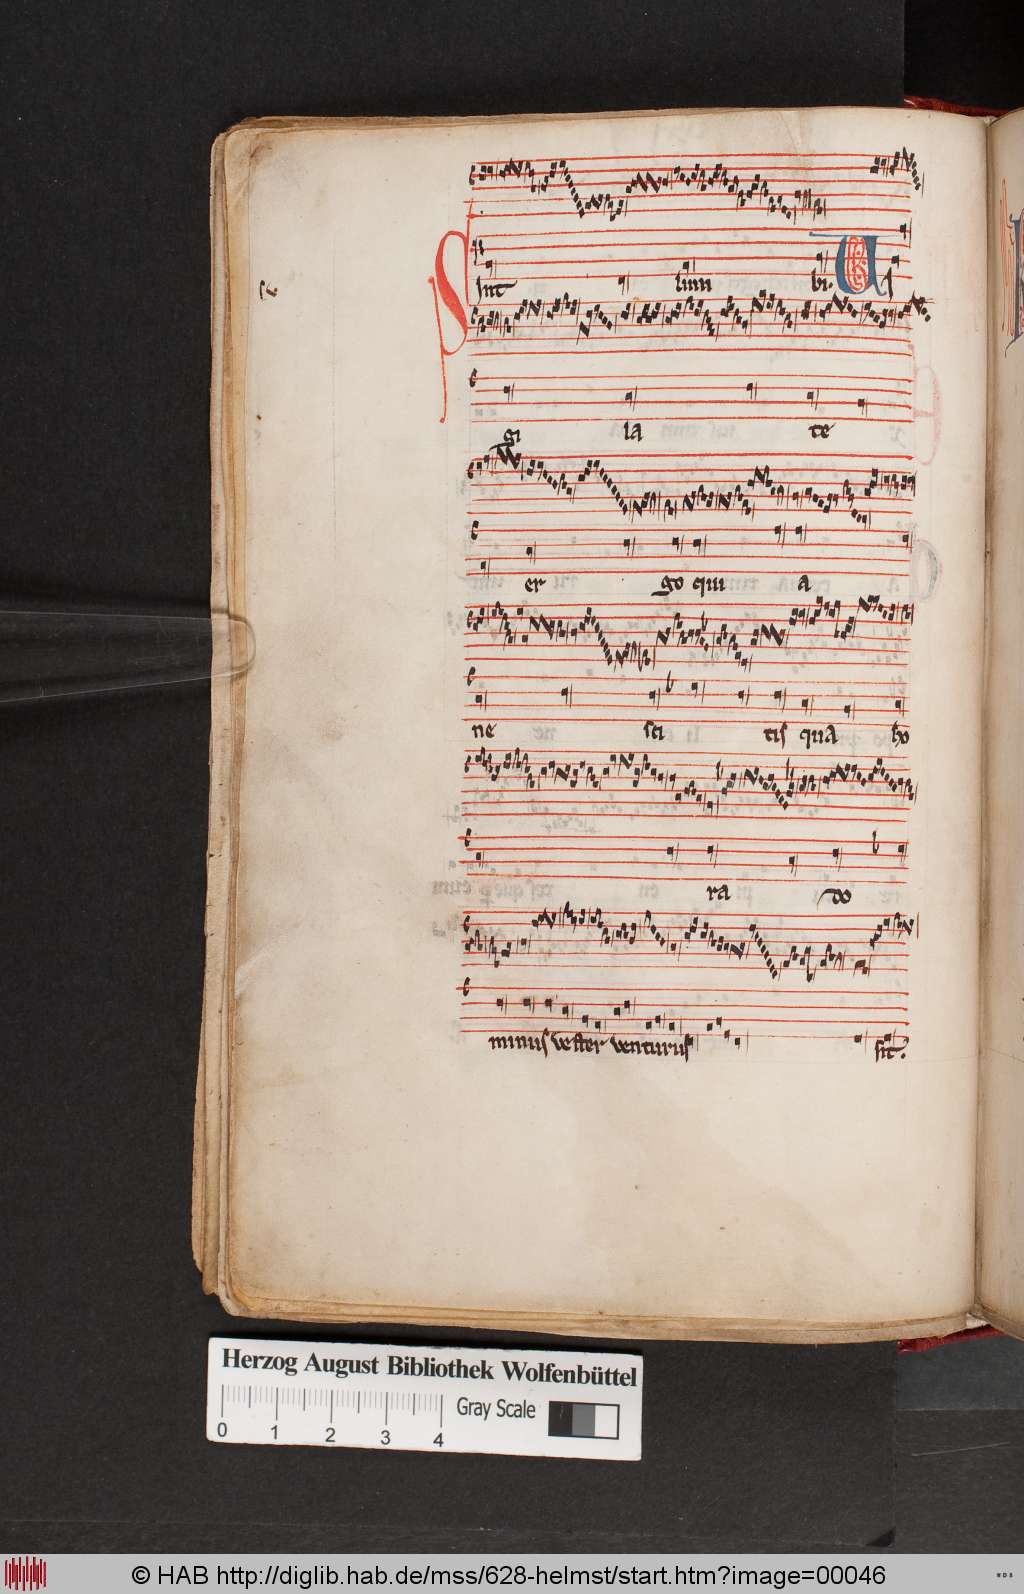 Sint lum bi. Va
gi la te
er go qui a
ne sci tis qua ho
ra do
minus vester venturus sit.
Herzog August Bibliothek Wolfenbüttel
0 1 2 3 4 Gray Scale
© HAB http://diglib.hab.de/mss/628-helmst/start.htm?image=00046